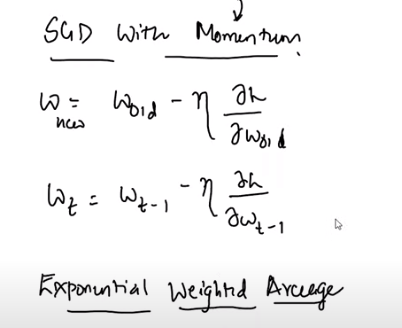 SGD With Momentum
w_new = w_old - η ∂L/∂w_old
w_t = w_t-1 - η ∂L/∂w_t-1
Exponential Weighted Average